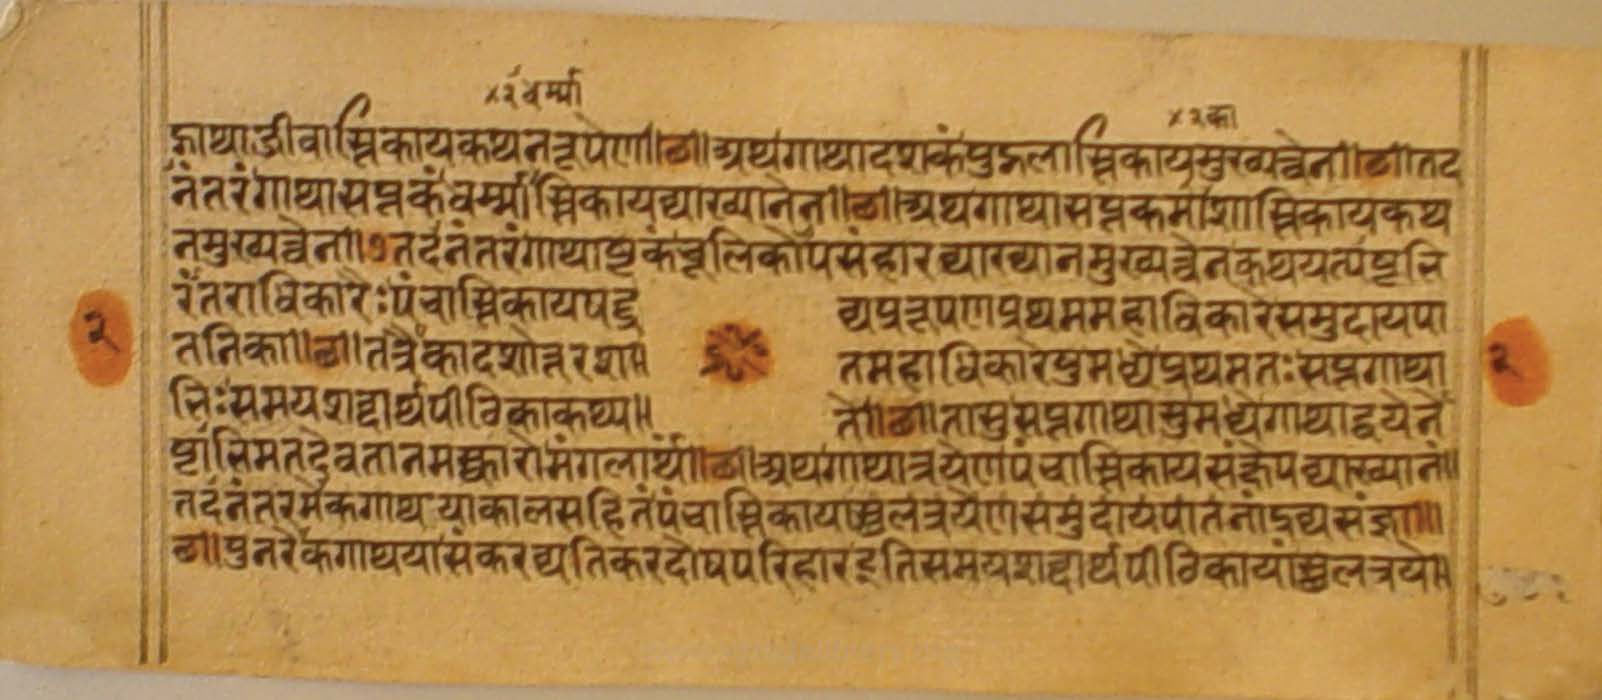 ×२ धर्म्मा
×२ का
द्गाथाजीवास्तिकायकथनरूपेण॥छ॥अथगाथादशकंपुद्गलास्तिकायमुख्यत्वेन॥छ॥तद
नंतरंगाथासप्तकंधर्म्मास्तिकायव्याख्यानेन॥छ॥अथगाथासप्तकमाशास्तिकायकथ
नमुख्यत्वेन॥७तदनंतरंगाथाष्टकंचूलिकोपसंहारव्याख्यानमुख्यत्वेनकथयत्पष्टभि
रंतराधिकारैःपंचास्तिकायषड्द्र व्यप्ररूपणप्रथममहाधिकारेसमुदायपा
तनिका॥छ॥तत्रैकादशोत्तरशा॥ तमहाधिकारेषुमध्येप्रथमतःसप्तगाथा
भिःसमयशब्दार्थपीठिकाकथ्य॥ ते॥छ॥तासुसप्तगाथासुमध्येगाथाद्वयेने
ष्टाभिमतदेवतानमस्कारोमंगलार्थं॥छ॥अथगाथात्रयेणपंचास्तिकायसंक्षेपव्याख्यानं॥
तदनंतरमेकगाथयाकालसहितपंचास्तिकायस्थलत्रयेणसमुदायपातनाद्रव्यसंज्ञा॥
छ॥पुनरेकगाथयासंकरव्यतिकरदोषपरिहारइतिसमयशब्दार्थपीठिकायांस्थलत्रये॥
२
२